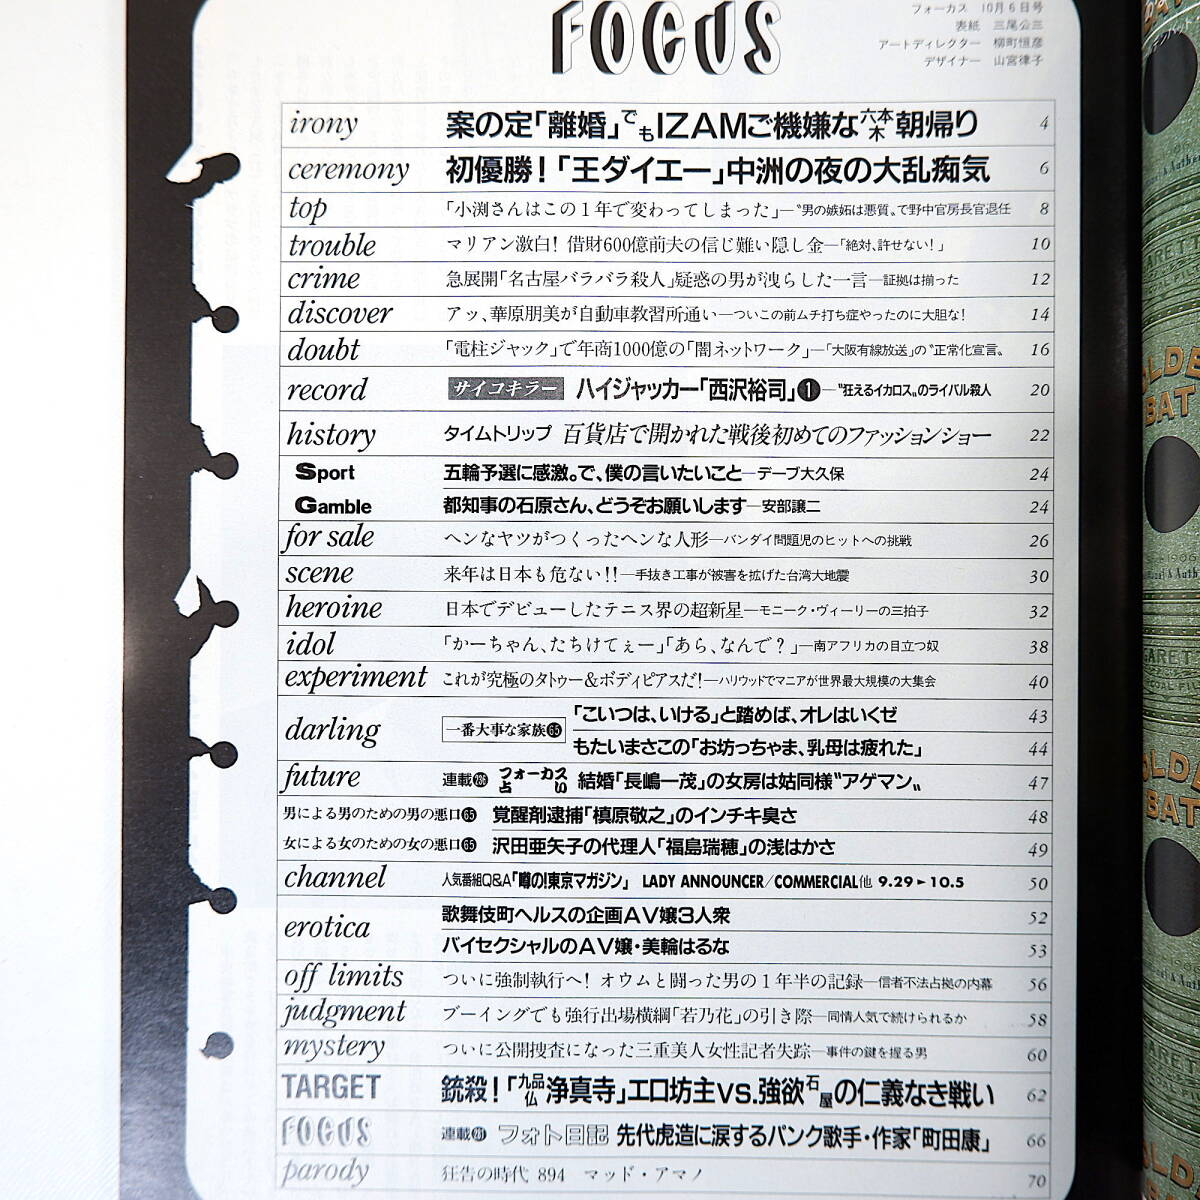 FOCUS
フォーカス 10月6日号
表紙 三尾公三
アートディレクター 柳町恒彦
デザイナー 山宮律子
irony 案の定「離婚」でもIZAMご機嫌な六本木朝帰り 4
ceremony 初優勝!「王ダイエー」中洲の夜の大乱痴気 6
top 「小渕さんはこの1年で変わってしまった」―〝男の嫉妬は悪質〟で野中官房長官退任 8
trouble マリアン激白! 借財600億前夫の信じ難い隠し金―「絶対、許せない!」 10
crime 急展開「名古屋バラバラ殺人」疑惑の男が洩らした一言―証拠は揃った 12
discover アッ、華原朋美が自動車教習所通い―ついこの前ムチ打ち症やったのに大胆な! 14
doubt 「電柱ジャック」で年商1000億の「闇ネットワーク」―「大阪有線放送」の〝正常化宣言〟 16
record サイコキラー ハイジャッカー「西沢裕司」❶―〝狂えるイカロス〟のライバル殺人 20
history タイムトリップ 百貨店で開かれた戦後初めてのファッションショー 22
Sport 五輪予選に感激。で、僕の言いたいこと―デーブ大久保 24
Gamble 都知事の石原さん、どうぞお願いします―安部譲二 24
for sale ヘンなヤツがつくったヘンな人形―バンダイ問題児のヒットへの挑戦 26
scene 来年は日本も危ない!!―手抜き工事が被害を拡げた台湾大地震 30
heroine 日本でデビューしたテニス界の超新星―モニーク・ヴィーリーの三拍子 32
idol 「かーちゃん、たちけてぇー」「あら、なんで?」―南アフリカの目立つ奴 38
experiment これが究極のタトゥー&ボディピアスだ!―ハリウッドでマニアが世界最大規模の大集会 40
darling 一番大事な家族65 「こいつは、いける」と踏めば、オレはいくゼ 43
もたいまさこの「お坊っちゃま、乳母は疲れた」 44
future 連載 フォーカス占い 結婚「長嶋一茂」の女房は姑同様〝アゲマン〟 47
男による男のための男の悪口65 覚醒剤逮捕「槙原敬之」のインチキ臭さ 48
女による女のための女の悪口65 沢田亜矢子の代理人「福島瑞穂」の浅はかさ 49
channel 人気番組Q&A「噂の!東京マガジン」 LADY ANNOUNCER/COMMERCIAL他 9.29►10.5 50
erotica 歌舞伎町ヘルスの企画AV嬢3人衆 52
バイセクシャルのAV嬢・美輪はるな 53
off limits ついに強制執行へ! オウムと闘った男の1年半の記録―信者不法占拠の内幕 56
judgment ブーイングでも強行出場横綱「若乃花」の引き際―同情人気で続けられるか 58
mystery ついに公開捜査になった三重美人女性記者失踪―事件の鍵を握る男 60
TARGET 銃殺!「九品仏浄真寺」エロ坊主vs.強欲石屋の仁義なき戦い 62
FOCUS 連載 フォト日記 先代虎造に涙するパンク歌手・作家「町田康」 66
parody 狂告の時代 894 マッド・アマノ 70